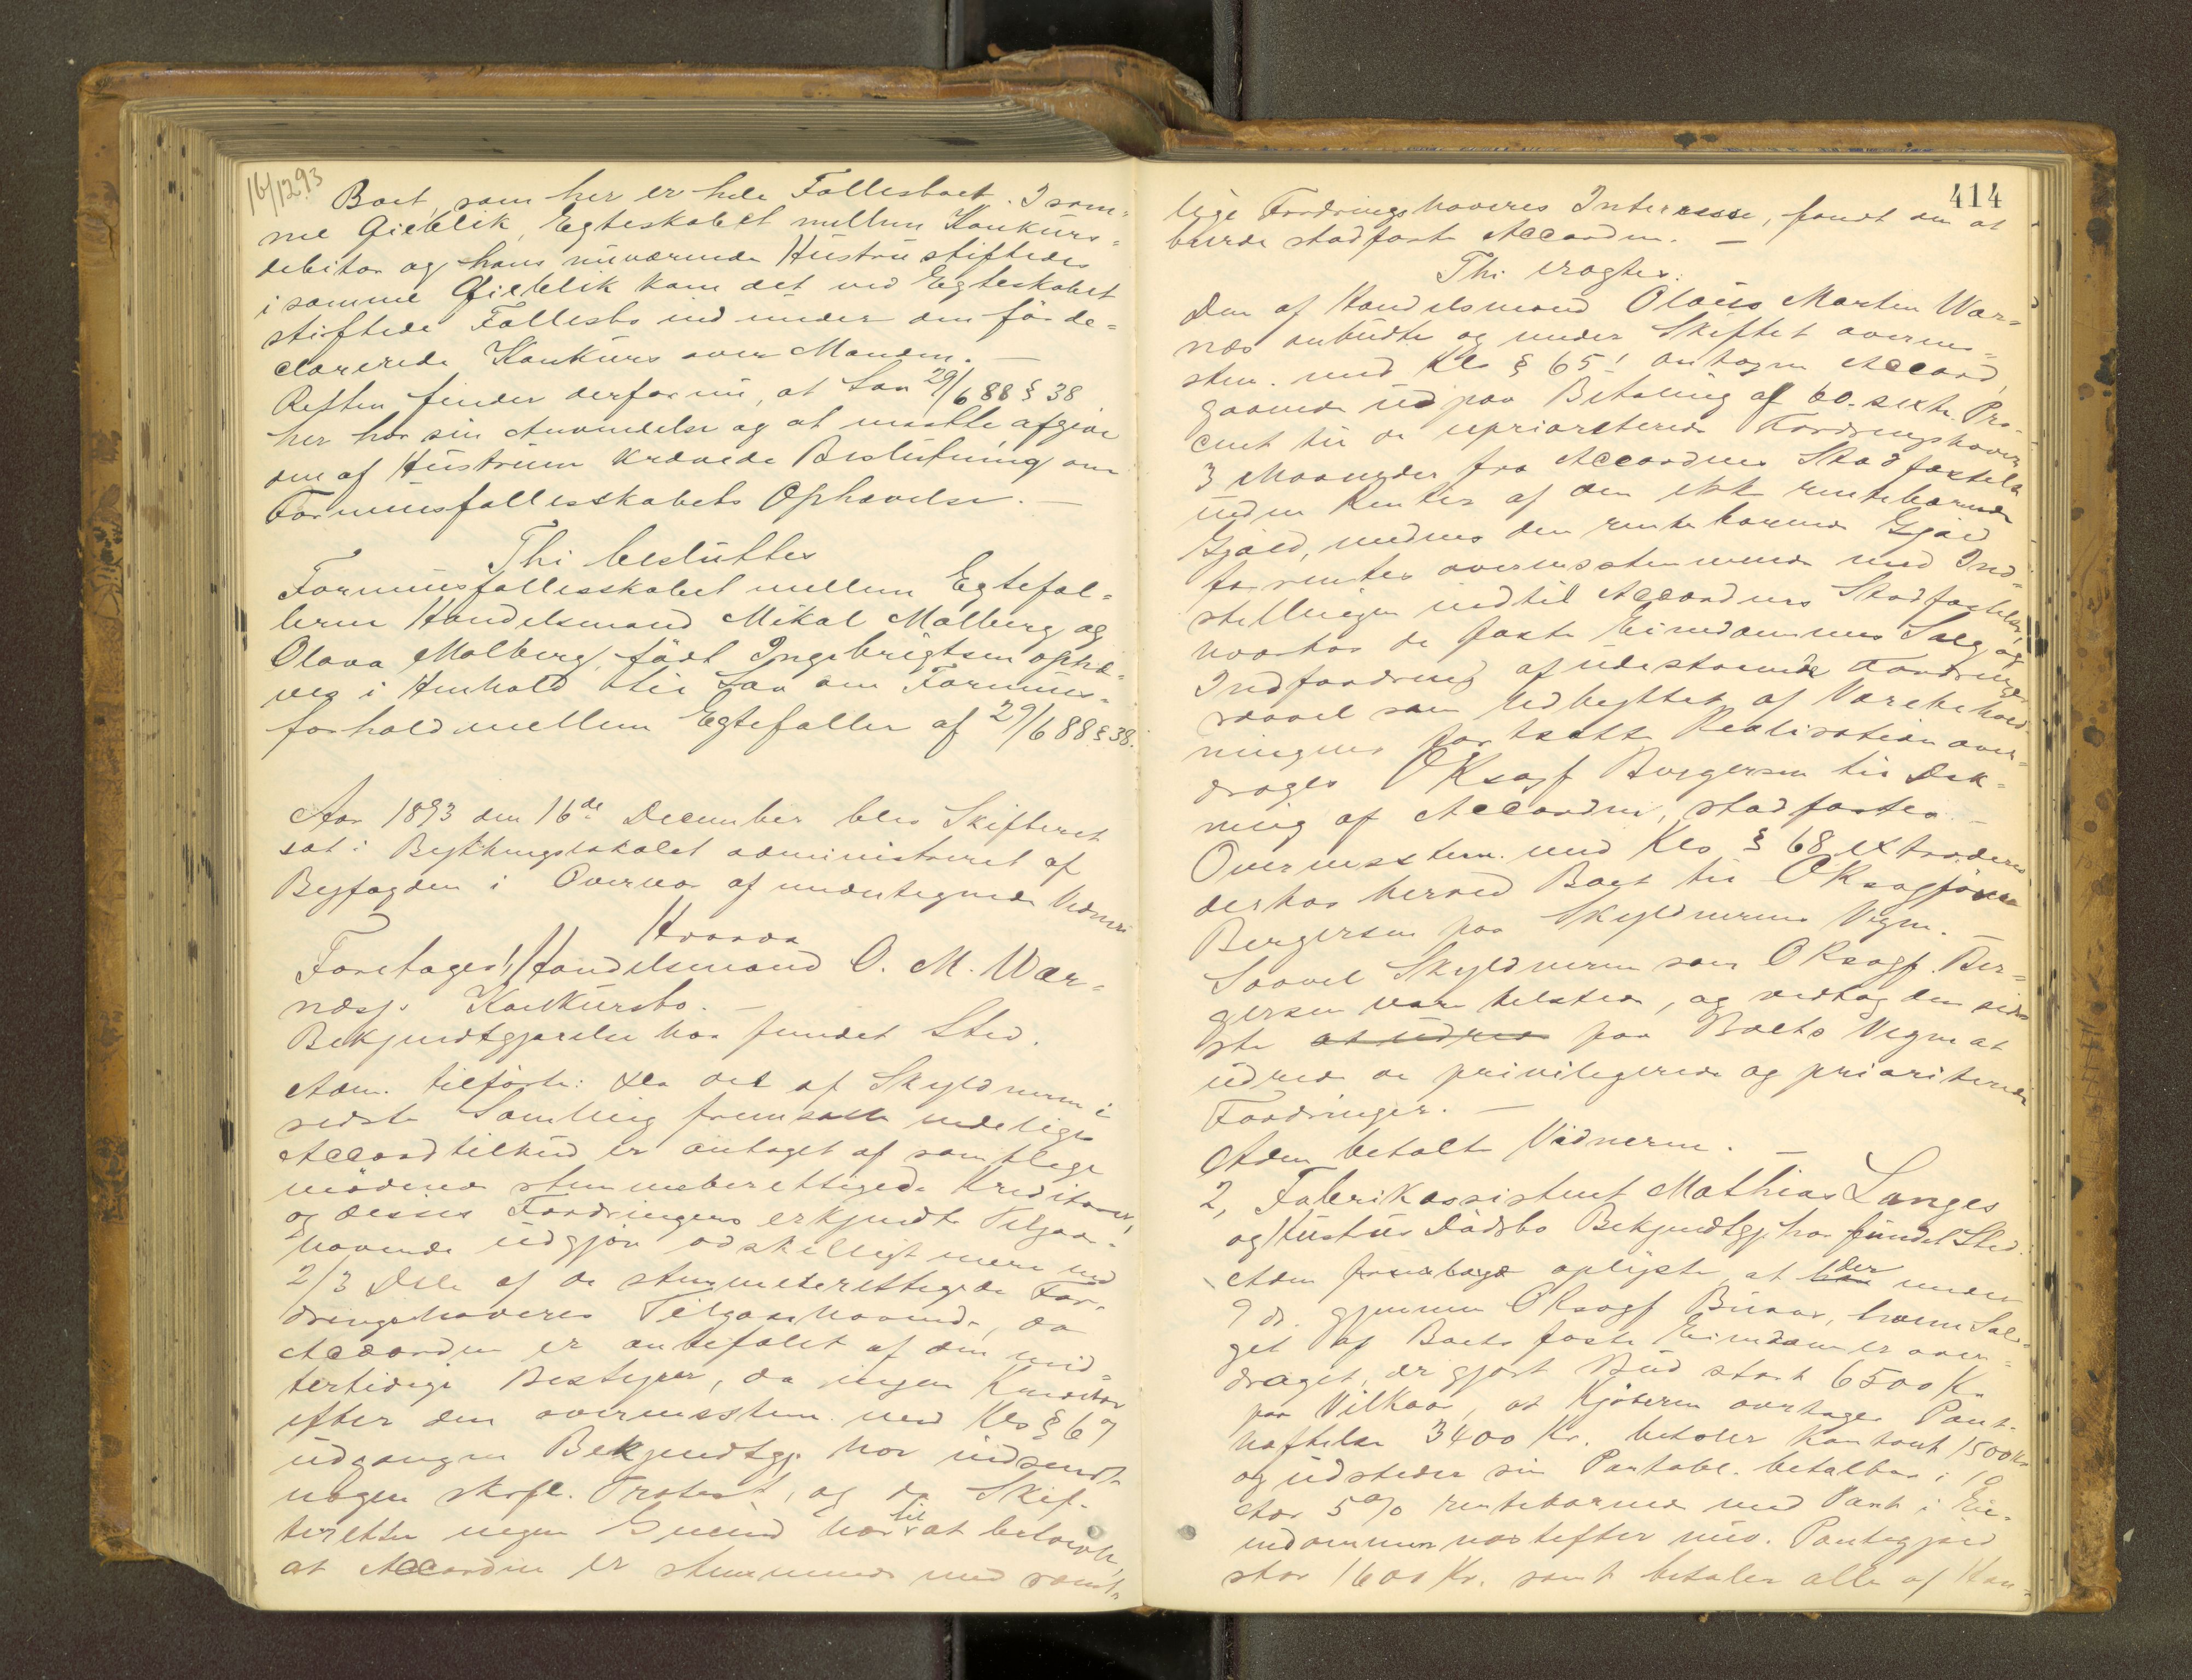 16/12 93
Boet, som her er hele Fællesboet. I sam=
me Øieblik, Egteskabet mellem Konkurs=
debitor og hans nuværende Hustru stiftedes
i samme Øieblik kom det ved Egteskabet
stiftede Fællesbo ind under den før de=
clarerede Konkurs over Manden. —
Retten finder derfor nu, at Lov 29/6 88 § 38
her har sin Anvendelse og at maatte afgive
den af Hustruen krævede Beslutning om
Formuesfællesskabets Ophævelse. —
Thi besluttes
Formuesfællesskabet mellem Egtefæl=
lerne Handelsmand Mikal Malberg og
Olava Malberg, født Ingebrigtsen ophæ=
ves i Henhold til Lov om Formues=
forhold mellem Egtefæller af 29/6 88 § 38.
Aar 1893 den 16de December blev Skifteret
sat i Bythingslokalet administreret af
Byfogden i Overvær af undertegnede Vidner
Hvorda
Foretages 1, Handelsmand O. M. Wær=
næs's Konkursbo. —
Bekjendtgjørelse har fundet Sted.
Adm. tilførte: Da det af Skyldneren i
sidste Samling fremsatte endelige
Accordtilbud er antaget af samtlige
mødende stemmeberettigede Kreditorer,
og disses Fordringers erkjendte Tilgode-
havende udgjør adskilligt mere end
2/3 Dele af de stemmeberettigede For-
dringshaveres Tilgodehavende, da
Accorden er anbefalet af den mid=
lertidige Bestyrer, da ingen Kreditor
efter den overensstem. med Kls § 67
udgangne Bekjendtgj. har indsendt
nogen skrftl. Protest, og da Skif-
teretten ingen Grund har til at betvivle,
at Accorden er stemmende med samt-
414
lige Fordringshaveres Interesse, fandt den at
burde stadfæste Accorden. —
Thi eragtes:
Den af Handelsmand Olaus Martin Wær=
næs anbudte og under Skiftet overens=
stem. med Kls § 65 antagne Accord,
gaaende ud paa Betaling af 60. sexti Pro-
cent til de uprioriterede Fordringshavere
3 Maaneder fra Accordens Stadfæstelse
uden Renter af den ikke rentebærende
Gjæld, medens den rentebærende Gjæld
forrentes overensstemmende med Ind=
stillingen indtil Accordens Stadfæstelse,
hvorhos de faste Eiendommes Salg og
Indfordring af udestaaende Fordringer
saavel som Udbyttet af Varebehold-
ningens fortsatte Realisation over=
drages OKsagf Bergersen til Dæk=
ning af Accorden, stadfæstes. —
Overensstem. med Kls § 68 extraderes
derhos herved Boet til OKsagfører
Bergersen paa Skyldnerens Vegne. —
Saavel Skyldneren som OKsagf. Ber=
gersen vare tilstede, og vedtog den sid-
ste paa Boets Vegne at
udrede de privilegerede og prioriterede
Fordringer. —
Adm betalte Vidnerne. —
2, Fabrikassistent Mathias Langes
og Hustrus Dødsbo Bekjendtgj. har fundet Sted.
Adm oplyste, at der under
9 ds. gjennem OKsagf Buaas, hvem Sal-
get af Boets faste Eiendom er over=
draget, er gjort Bud stort 6500 Kr
paa Vilkaar, at Kjøberen overtager Pant-
heftelse 3400 Kr. betaler Kontant 1500 Kr
og udsteder sin Pantobl. betalbar i 10
Aar 5% rentebærende med Pant i Eie-
endommen næstefter nuv. Pantegjæld
stor 1600 Kr. samt betaler alle af Han=